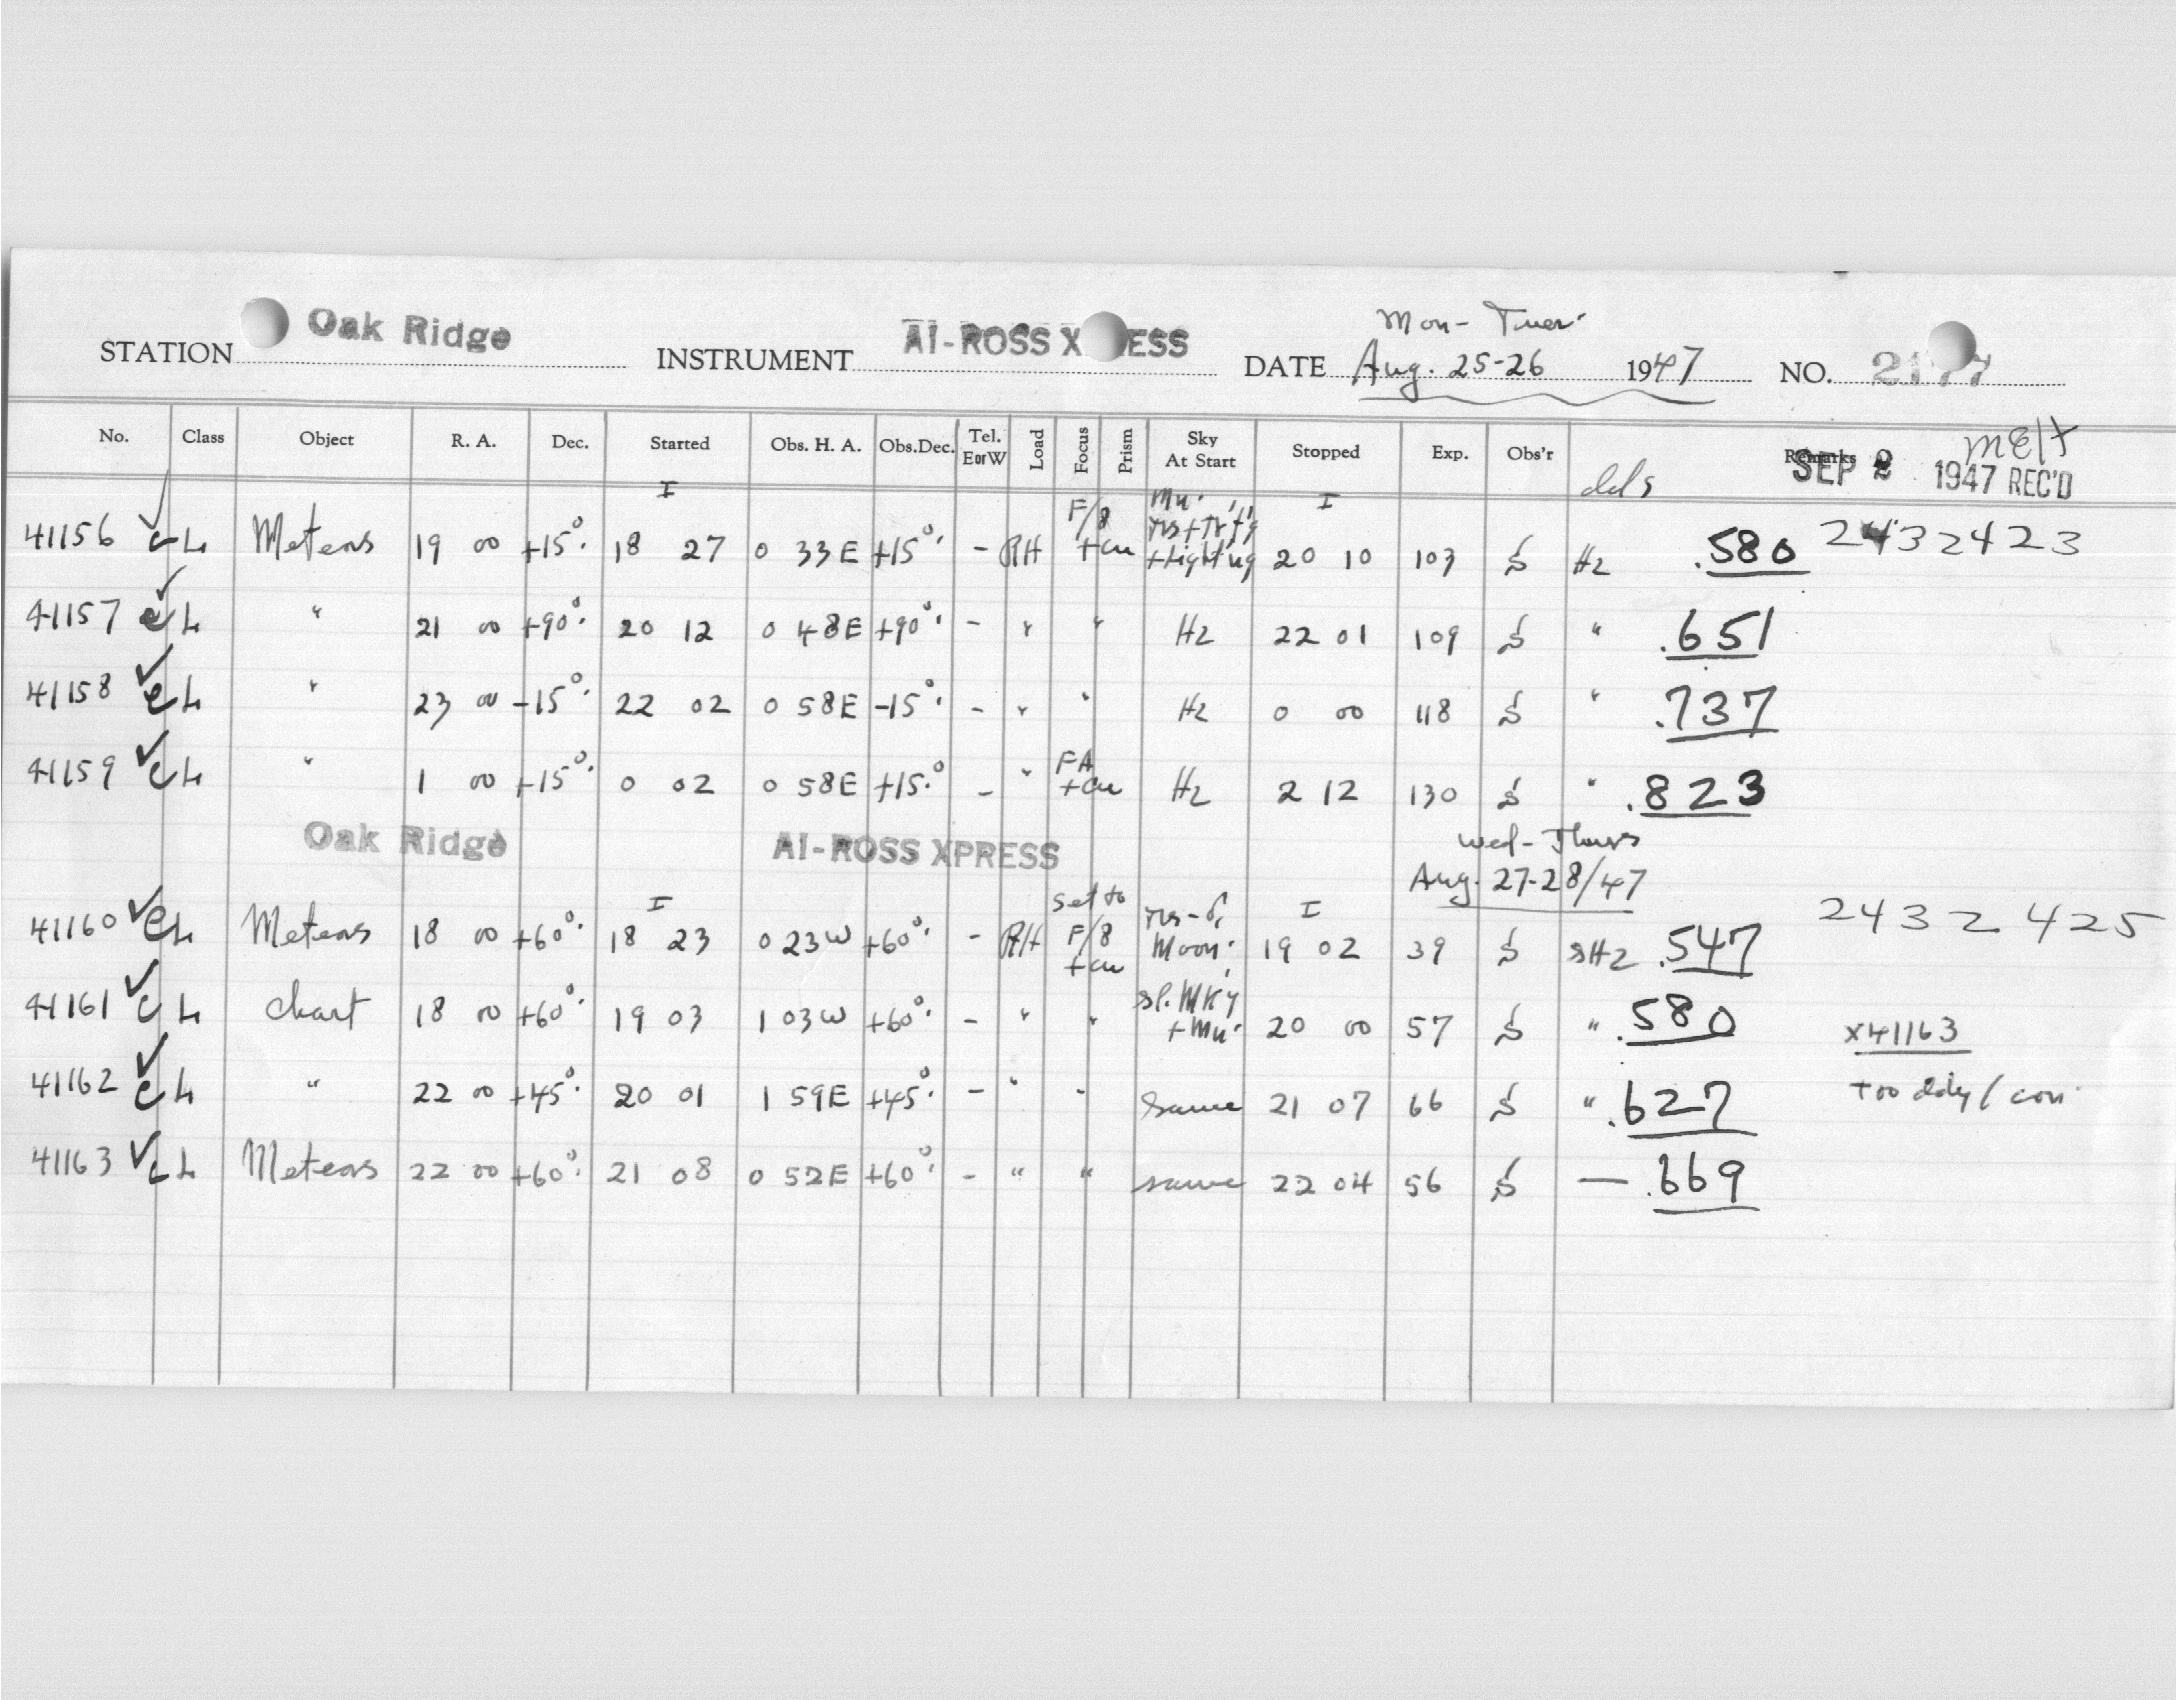 Mon - Tues.
STATION Oak Ridge INSTRUMENT AI-ROSS X ESS DATE Aug. 25-26 1947 NO. 21 7
No. Class Object R. A. Dec. Started Obs. H. A. Obs.Dec. Tel. E or W Load Focus Prism Sky At Start Stopped Exp. Obs'r Remarks
melt
SEP 2 1947 REC'D
I I
41156 CL Meteors 19 00 +15°. 18 27 0 33E +15°. - RH F/8 +cu 20 10 103 S Hz .580 2432423
41157 CL " 21 00 +90°. 20 12 0 48E +90°. - " " Hz 22 01 109 S " .651
41158 CL " 23 00 -15°. 22 02 0 58E -15°. - " " Hz 0 00 118 S " .737
41159 CL " 1 00 +15°. 0 02 0 58E +15.° - " FA +cu Hz 2 12 130 S " .823
Oak Ridge AI-ROSS XPRESS Wed - Thurs
Aug. 27-28/47
I I
41160 CL Meteors 18 00 +60°. 18 23 0 23W +60°. - RH set to F/8 +cu Moon. 19 02 39 S sHz .547 2432 425
41161 CL Chart 18 00 +60°. 19 03 1 03W +60°. - " " sl. MKy 20 00 57 S " .580 x41163
41162 CL " 22 00 +45°. 20 01 1 59E +45°. - " " same 21 07 66 S " .627 too
41163 CL Meteors 22 00 +60°. 21 08 0 52E +60°. - " " same 22 04 56 S — .669